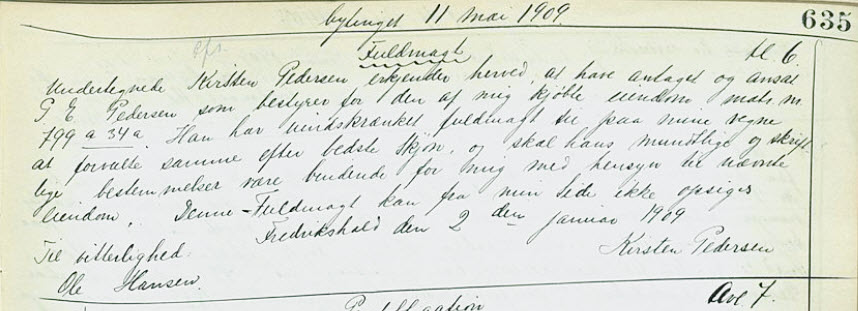 bytinget 11 mai 1909
635
Fuldmagt
kl. 6.
Undertegnede Kirsten Pedersen erkjender herved, at have antaget og ansat
P E Pedersen som bestyrer for den af mig kjöbte eiendom matr. nr
799 a 34 a. Han har uindskrænket fuldmagt til paa mine vegne
at forvalte samme efter bedste skjön, og skal hans mundtlige og skrift-
lige bestemmelser være bindende for mig med hensyn til nævnte
eiendom. Denne Fuldmagt kan fra min side ikke opsiges
Fredrikshald den 2 den januar 1909
Kirsten Pedersen
Til vitterlighed.
Ole Hansen.